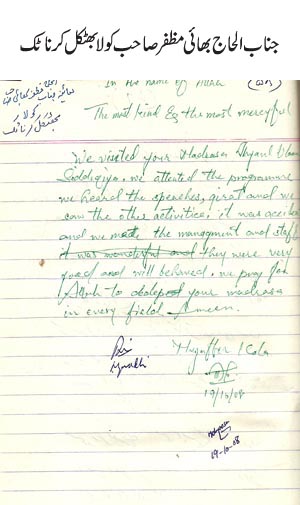 جناب الحاج بھائی مظفر صاحب کولا بھٹکل کرناٹک
In the name of Allah
The most kind & the most merciful
We visited your Madrasa
Siddiqiya. we attented the programme
we heard the speeches, qirat and we
saw the other activities. it was
and we made the mangment and staff
it was wonderful and they were very
good and will behaved. we pray for
Allah to your madrasa
in every field Ameen.
Muzaffer Kola
19/10/08
19-10-08